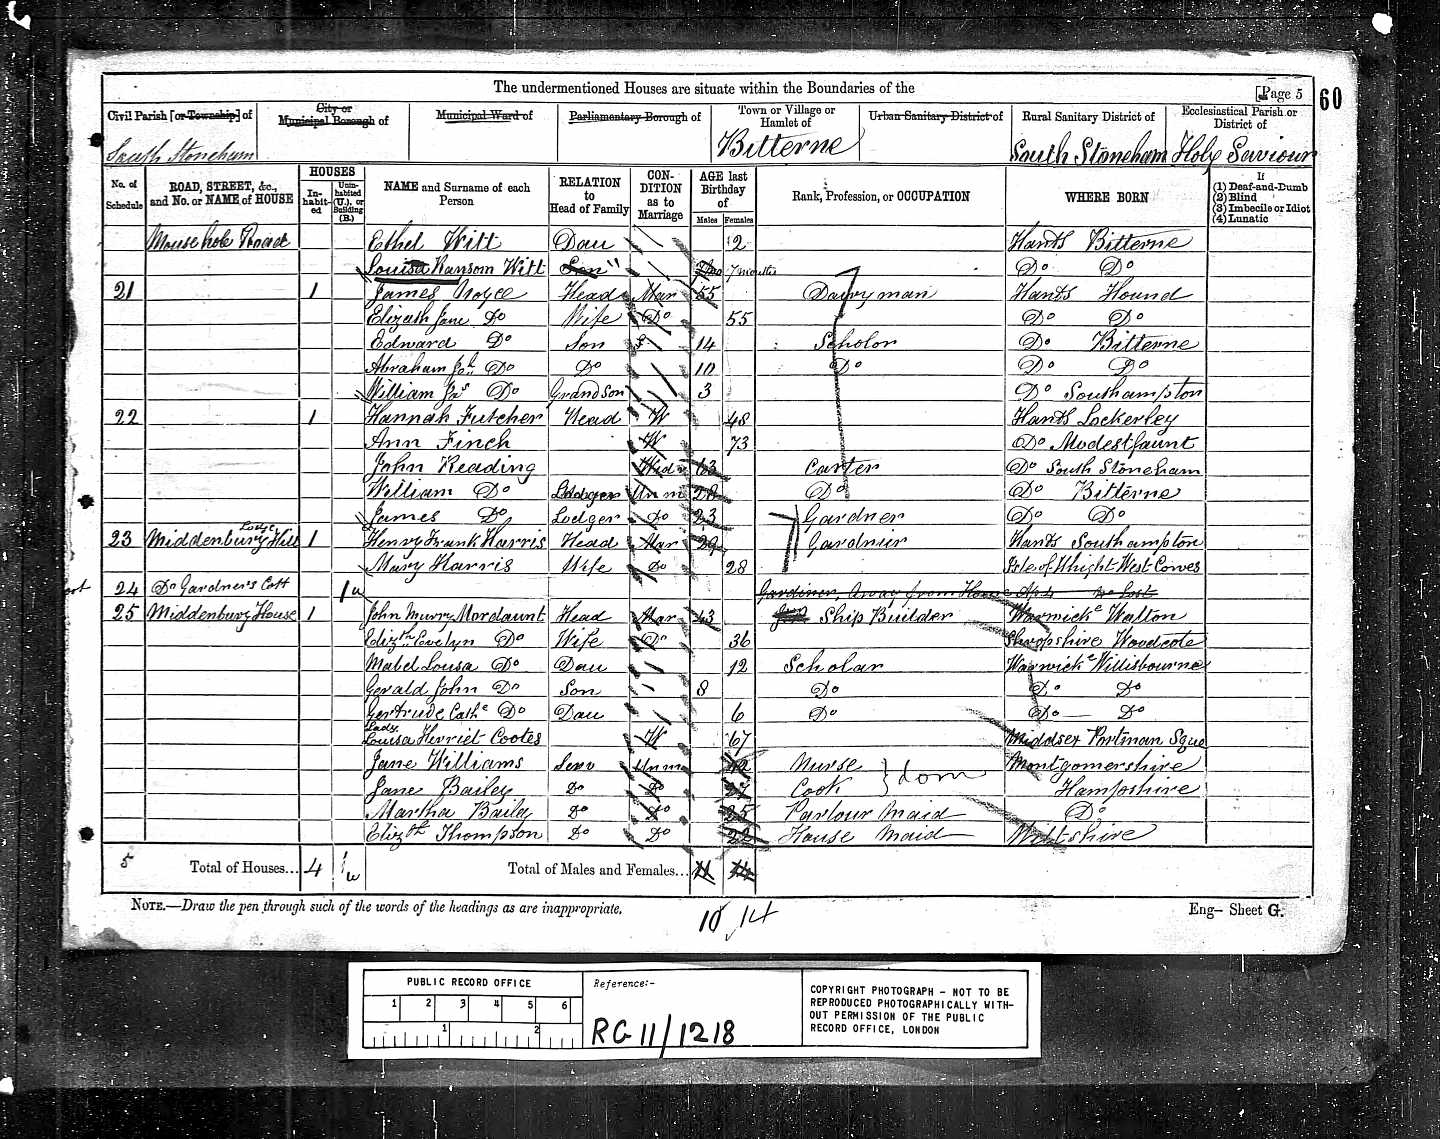 The undermentioned Houses are situate within the Boundaries of the
[Page 5
60
Civil Parish [or Township] of
City or Municipal Borough of
Municipal Ward of
Parliamentary Borough of
Town or Village or Hamlet of
Urban Sanitary District of
Rural Sanitary District of
Ecclesiastical Parish or District of
South Stoneham
Bitterne
South Stoneham
Holy Saviour
No. of Schedule
ROAD, STREET, &c., and No. or NAME of HOUSE
HOUSES
In-habit-ed
Unin-habited (U.), or Building (B.)
NAME and Surname of each Person
RELATION to Head of Family
CON-DITION as to Marriage
AGE last Birthday of
Males
Females
Rank, Profession, or OCCUPATION
WHERE BORN
If
(1) Deaf-and-Dumb
(2) Blind
(3) Imbecile or Idiot
(4) Lunatic
Mousehole Road Ethel Witt Dau 2 Hants Bitterne
Louisa Ransom Witt Son " 7 months Do Do
21 1 James Head Mar 55 Dairyman Hants Hound
Elizath Jane Do Wife Do 55 Do Do
Edward Do Son 14 Scholor Do Bitterne
Abraham Do Do 10 Do Do Do
William Do Grandson 3 Do Southampton
22 1 Hannah Futcher Head W 48 Hants Lockerley
Ann Finch W 73 Do Modestfaunt
John Reading Widr 63 Carter Do South Stoneham
William Do Lodger Unm 28 Do Do Bitterne
James Do Lodger Do 23 Gardner Do Do
23 Middenbury Lodge Hill 1 Henry Frank Harris Head Mar 29 Gardnier Hants Southampton
Mary Harris Wife Do 28 Isle of Whight West Cowes
24 Do Gardner's Cott 1u Gardiner, Away from Home
25 Middenbury House 1 John Murry Mordaunt Head Mar 43 Ship Builder Warwicke Walton
Elizth Evelyn Do Wife Do 36 Shropshire Woodcote
Mabel Lousa Do Dau 12 Scholar Warwicke Willisbourne
Gerald John Do Son 8 Do Do Do
Gertrude Cathe Do Dau 6 Do Do Do
Lady Louisa Herriet Cootes W 67 Middsex Portman Sque
Jane Williams Serv Unm 42 Nurse } dom Montgomershire
Jane Bailey Do Do 27 Cook Hampshire
Martha Baily Do Do 25 Parlour Maid Do
Elizth Thompson Do Do 22 House Maid Wiltshire
5 Total of Houses... 4 1/u Total of Males and Females... 11 14
NOTE.—Draw the pen through such of the words of the headings as are inappropriate.
10 14
Eng— Sheet G.
PUBLIC RECORD OFFICE
1 2 3 4 5 6
1 2
Reference:-
RG 11/1218
COPYRIGHT PHOTOGRAPH - NOT TO BE
REPRODUCED PHOTOGRAPHICALLY WITH-
OUT PERMISSION OF THE PUBLIC
RECORD OFFICE, LONDON